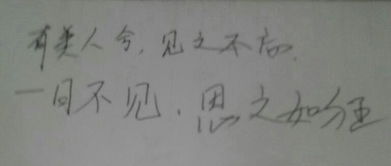 有美人兮,见之不忘.
一日不见,思之如狂